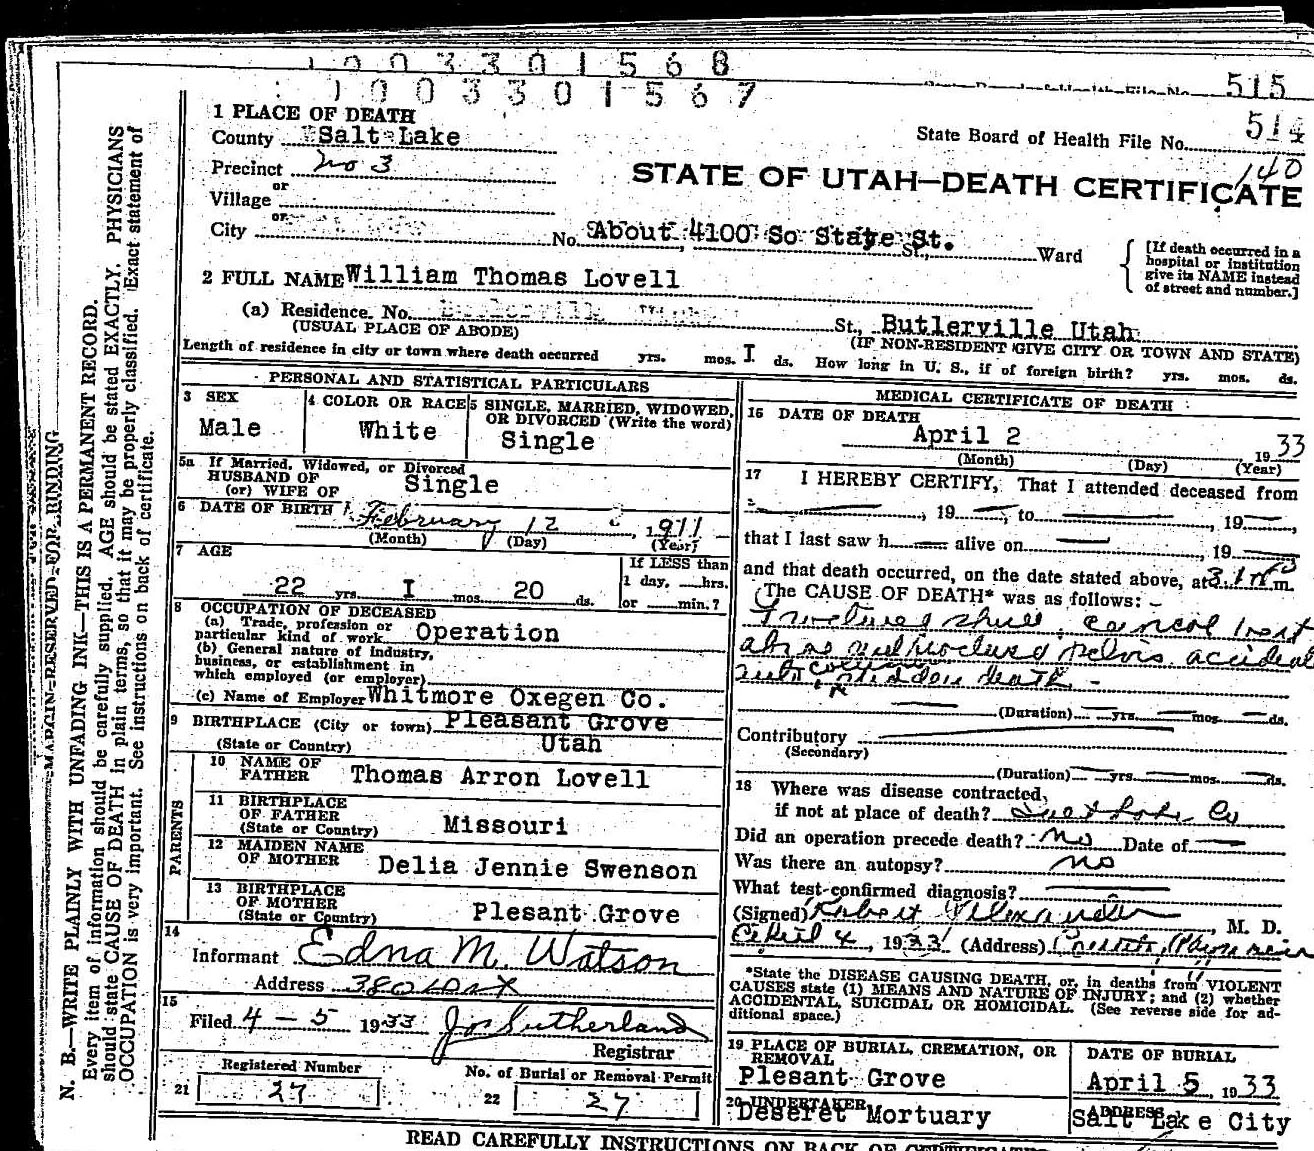 1 0 0 3 3 0 1 5 6 8
1 0 0 3 3 0 1 5 6 7
515
1 PLACE OF DEATH
County Salt Lake
State Board of Health File No. 514
Precinct No 3
140
STATE OF UTAH—DEATH CERTIFICATE
or
Village
or
City
No. About 4100 So State St. St., Ward
[If death occurred in a
hospital or institution
give its NAME instead
of street and number.]
2 FULL NAME William Thomas Lovell
(a) Residence. No. St., Butlerville Utah
(USUAL PLACE OF ABODE) (IF NON-RESIDENT GIVE CITY OR TOWN AND STATE)
Length of residence in city or town where death occurred yrs. mos. I ds. How long in U. S., if of foreign birth? yrs. mos. ds.
PERSONAL AND STATISTICAL PARTICULARS
3 SEX
Male
4 COLOR OR RACE
White
5 SINGLE, MARRIED, WIDOWED,
OR DIVORCED (Write the word)
Single
5a If Married, Widowed, or Divorced
HUSBAND OF
(or) WIFE OF Single
6 DATE OF BIRTH February 12, 1911
(Month) (Day) (Year)
7 AGE
22 yrs. I mos. 20 ds.
If LESS than
1 day, hrs.
or min.?
8 OCCUPATION OF DECEASED
(a) Trade, profession or
particular kind of work Operation
(b) General nature of industry,
business, or establishment in
which employed (or employer)
(c) Name of Employer Whitmore Oxegen Co.
9 BIRTHPLACE (City or town) Pleasant Grove
(State or Country) Utah
PARENTS
10 NAME OF
FATHER Thomas Arron Lovell
11 BIRTHPLACE
OF FATHER
(State or Country) Missouri
12 MAIDEN NAME
OF MOTHER Delia Jennie Swenson
13 BIRTHPLACE
OF MOTHER
(State or Country) Plesant Grove
14
Informant Edna M. Watson
Address
15
Filed 4 - 5 1933 Jos Sutherland
Registrar
Registered Number
21 27
No. of Burial or Removal Permit
22 27
MEDICAL CERTIFICATE OF DEATH
16 DATE OF DEATH
April 2 1933
(Month) (Day) (Year)
17 I HEREBY CERTIFY, That I attended deceased from
, 19 , to , 19
that I last saw h alive on , 19
and that death occurred, on the date stated above, at m.
The CAUSE OF DEATH* was as follows:
pelvis accident
auto death
(Duration) yrs. mos. ds.
Contributory
(Secondary)
(Duration) yrs. mos. ds.
18 Where was disease contracted,
if not at place of death? Salt Lake Co
Did an operation precede death? No Date of
Was there an autopsy? no
What test confirmed diagnosis?
(Signed) Robert Alexander, M. D.
April 4, 1933 (Address)
*State the DISEASE CAUSING DEATH, or, in deaths from VIOLENT
CAUSES state (1) MEANS AND NATURE OF INJURY; and (2) whether
ACCIDENTAL, SUICIDAL OR HOMICIDAL. (See reverse side for ad-
ditional space.)
19 PLACE OF BURIAL, CREMATION, OR
REMOVAL
Plesant Grove
DATE OF BURIAL
April 5, 1933
20 UNDERTAKER
Deseret Mortuary
ADDRESS
Salt Lake City
READ CAREFULLY INSTRUCTIONS ON BACK OF CERTIFICATE
MARGIN RESERVED FOR BINDING
N. B.—WRITE PLAINLY WITH UNFADING INK—THIS IS A PERMANENT RECORD.
Every item of information should be carefully supplied. AGE should be stated EXACTLY. PHYSICIANS
should state CAUSE OF DEATH in plain terms, so that it may be properly classified. Exact statement of
OCCUPATION is very important. See instructions on back of certificate.